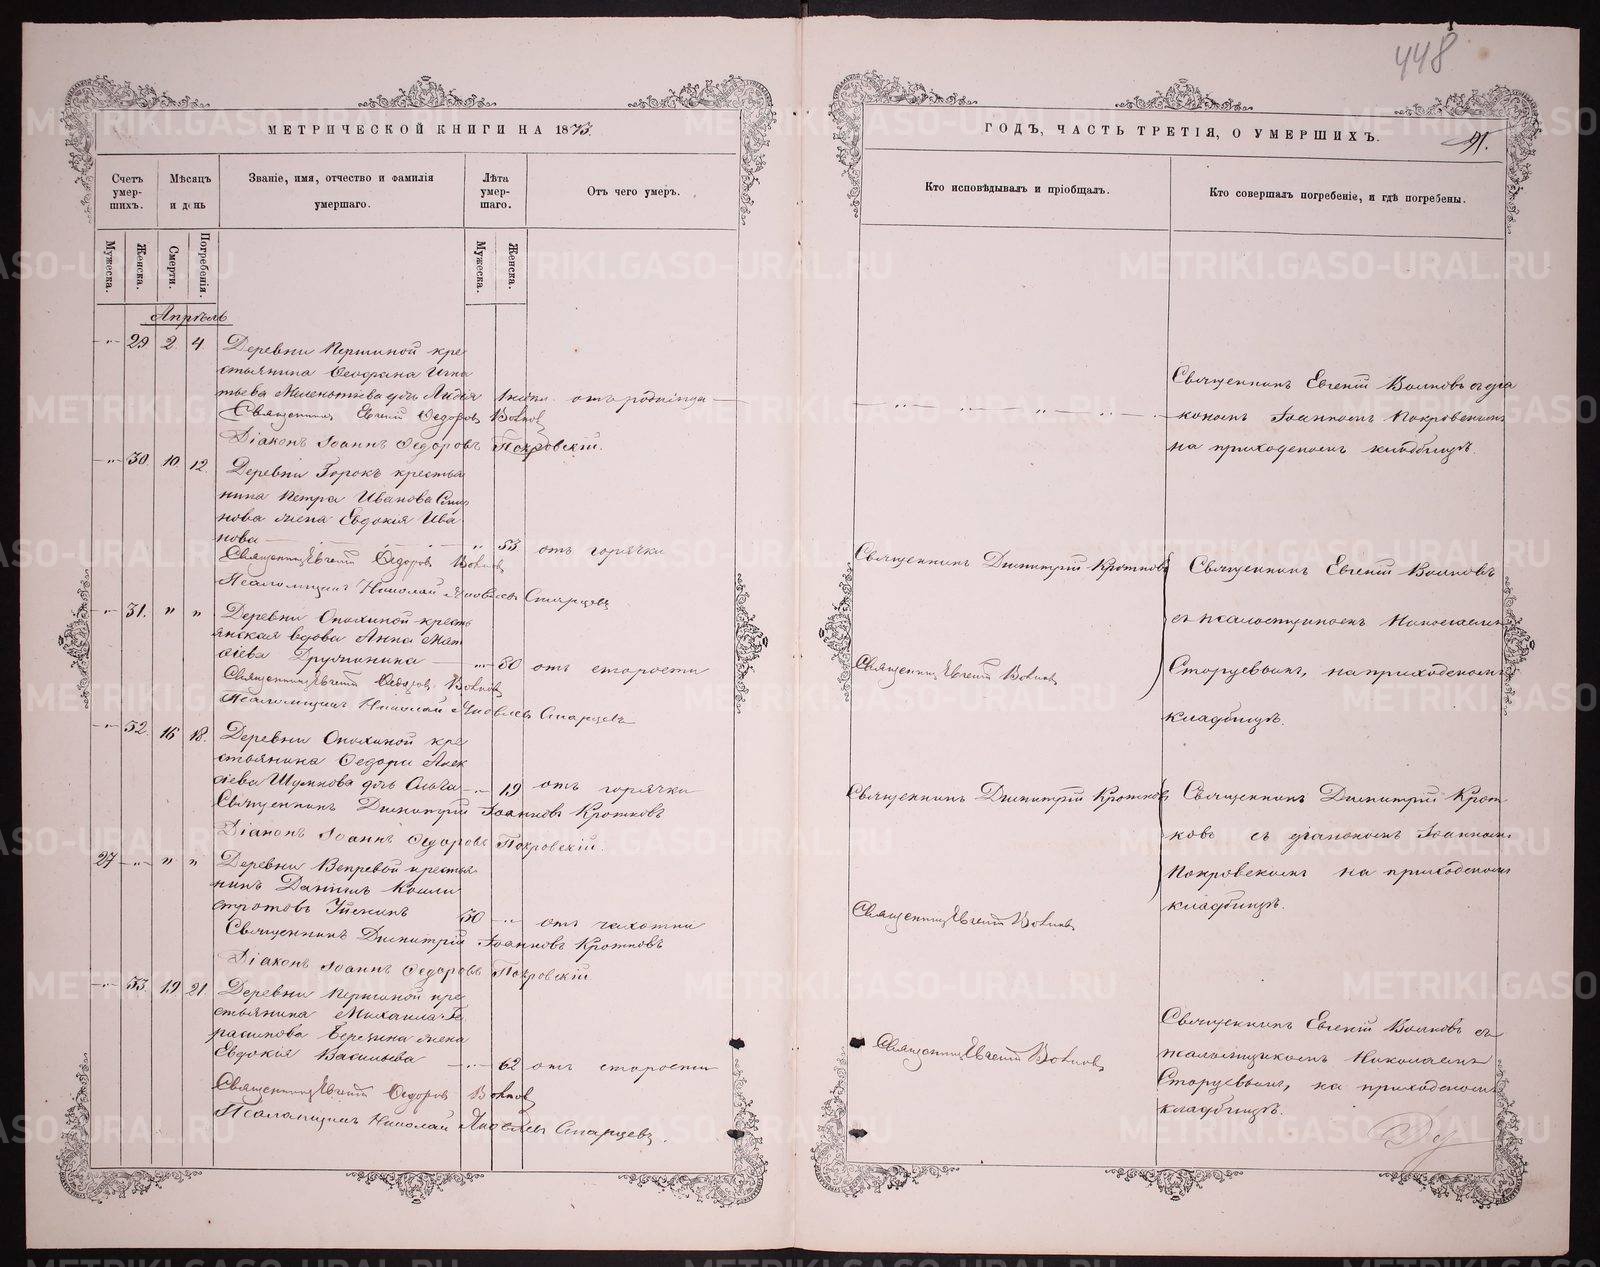 448
МЕТРИЧЕСКОЙ КНИГИ НА 1873.
Счетъ умер-шихъ.
Мѣсяцъ и день
Званіе, имя, отчество и фамилія умершаго.
Лѣта умер-шаго.
Отъ чего умеръ.
Мужеска.
Женска.
Смерти.
Погребенія.
Мужеска.
Женска.
Апрѣль
29 2 4 Деревни Першиной кре
стьянина Ѳеофана Игна
тьева дочь Лидія отъ родимца
Священникъ Евгеній Ѳедоровъ Волковъ
Діаконъ Іоаннъ Ѳедоровъ Покровскій.
30 10 12 Деревни Горокъ крестья
нина Петра Иванова
нова жена Евдокія Ива
нова 53 отъ горячки
Священникъ Евгеній Ѳедоровъ Волковъ
Псаломщикъ Николай Яковлевъ Старцевъ
31. " " Деревни кресть
янская вдова Анна Мат
ѳіева 80 отъ старости
Священникъ Евгеній Ѳедоровъ Волковъ
Псаломщикъ Николай Яковлевъ Старцевъ
32. 16 18. Деревни кре
стьянина Ѳедора Алек
сіева дочь 19 отъ горячки
Священникъ Димитрій Іоанновъ Кротковъ
Діаконъ Іоаннъ Ѳедоровъ Покровскій.
27 " " Деревни Вепревой крестья
нинъ Даніилъ Калли
стратовъ 50 отъ чахотки
Священникъ Димитрій Іоанновъ Кротковъ
Діаконъ Іоаннъ Ѳедоровъ Покровскій
33 19 21. Деревни Першиной кре
стьянина Михаила Ге
расимова Березина жена
Евдокія Васильева 62 отъ старости
Священникъ Евгеній Ѳедоровъ Волковъ
Псаломщикъ Николай Яковлевъ Старцевъ.
ГОДЪ, ЧАСТЬ ТРЕТІЯ, О УМЕРШИХЪ.
91.
Кто исповѣдывалъ и пріобщалъ.
Кто совершалъ погребеніе, и гдѣ погребены.
Священникъ Евгеній Волковъ съ діа
кономъ Іоанномъ Покровскимъ
на приходскомъ кладбищѣ.
Священникъ Димитрій Кротковъ
Священникъ Евгеній Волковъ
съ псаломщикомъ Николаемъ
Священникъ Евгеній Волковъ
Старцевымъ, на приходскомъ
кладбищѣ.
Священникъ Димитрій Кротковъ
Священникъ Димитрій Крот
ковъ съ діакономъ Іоанномъ
Покровскимъ на приходскомъ
Священникъ Евгеній Волковъ
кладбищѣ.
Священникъ Евгеній Волковъ
Священникъ Евгеній Волковъ съ
псаломщикомъ Николаемъ
Старцевымъ, на приходскомъ
кладбищѣ.
METRIKI.GASO-URAL.RU